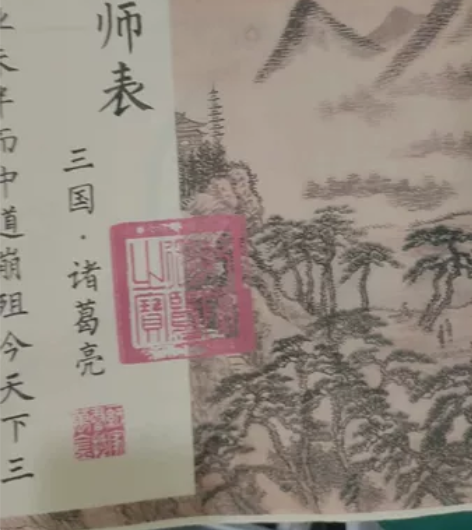 师表
三国·诸葛亮
业未半而中道崩殂今天下三
之寶